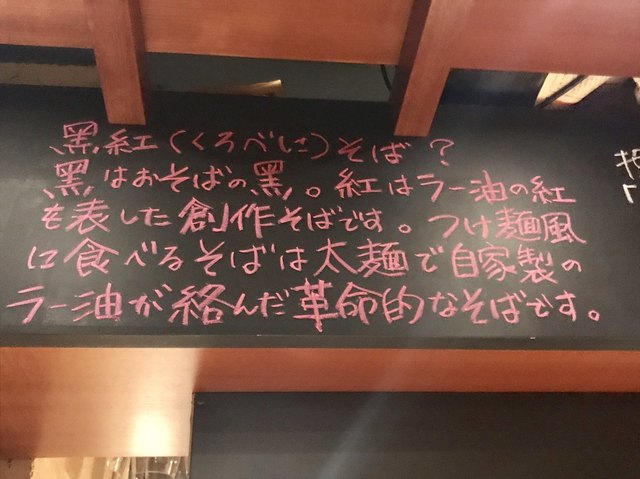 黒紅(くろべに)そば?
黒はおそばの黒。紅はラー油の紅
を表した創作そばです。つけ麺風
に食べるそばは太麺で自家製の
ラー油が絡んだ革命的なそばです。